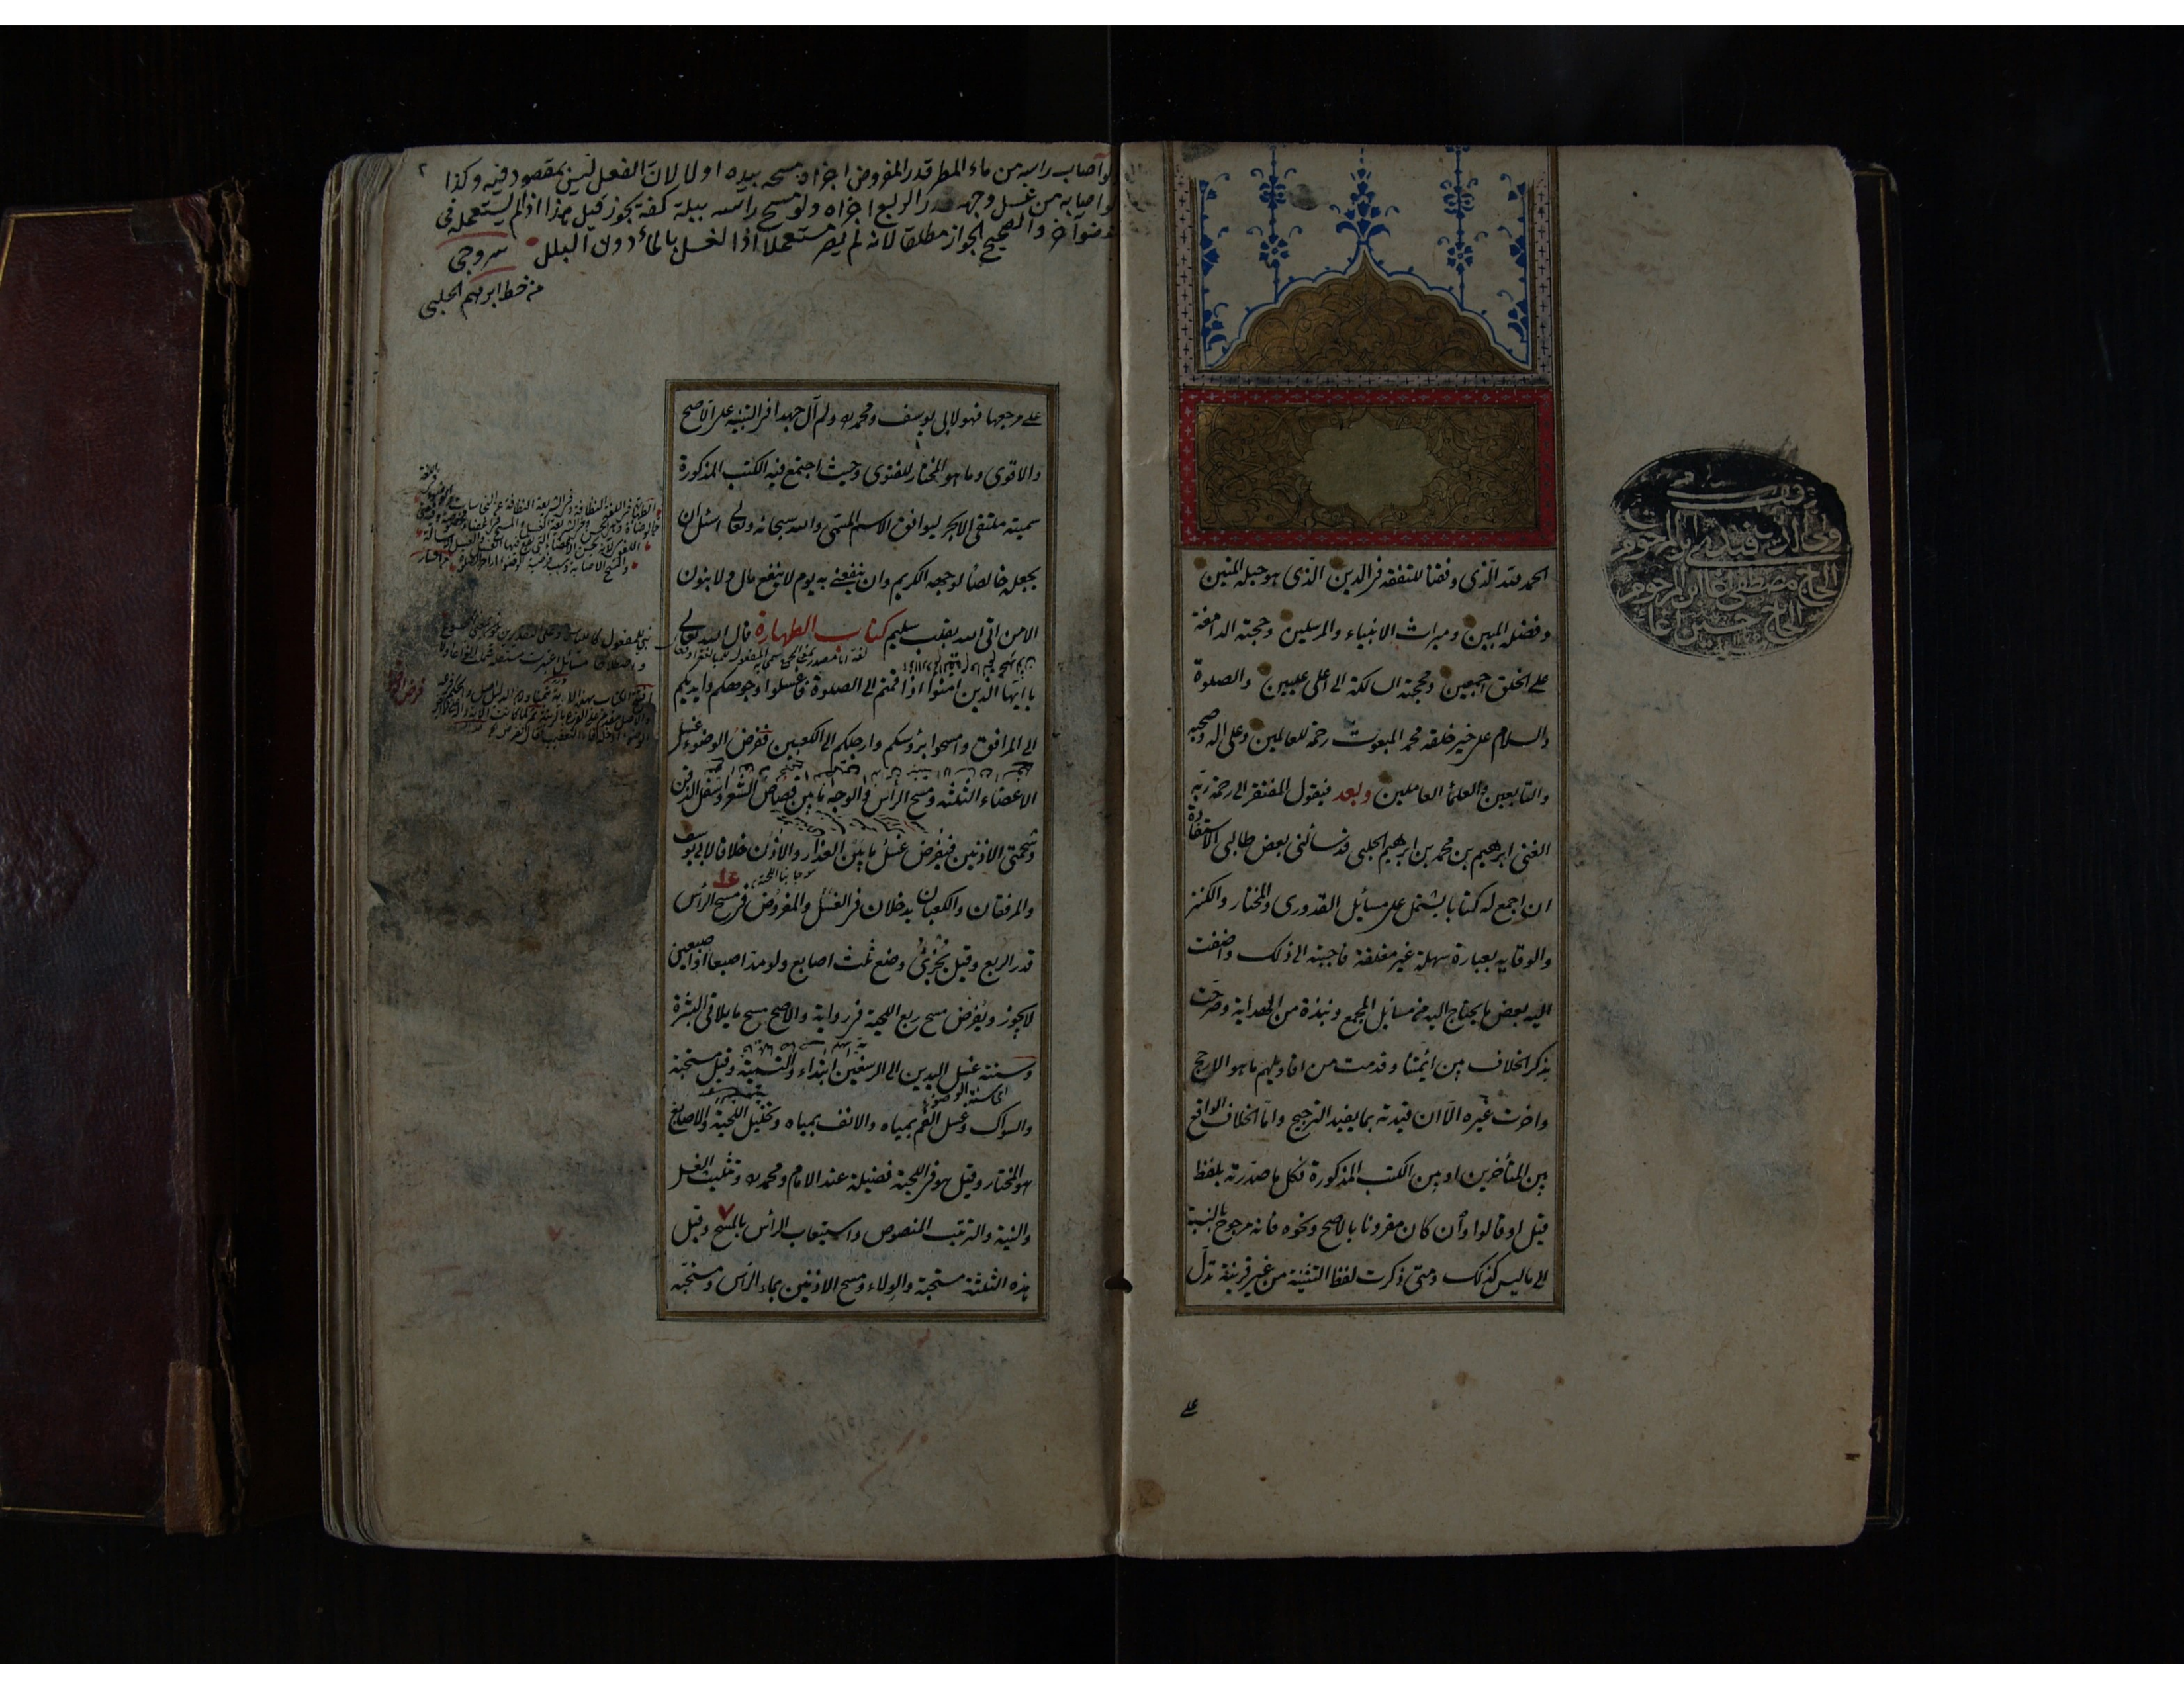 الحمد لله الذى وفقنا للتفقه فى الدين الذى هو حبله المتين
وفضله المبين وميراث الانبياء والمرسلين وحجته الدامغة
على الخلق اجمعين ومحجته السالكة الى اعلى عليين والصلوة
والسلام على خير خلقه محمد المبعوث رحمة للعالمين وعلى اله وصحبه
والتابعين والعلمأ العاملين وبعد فيقول المفتقر الى رحمة ربه
الغنى ابرهيم بن محمد بن ابرهيم الحلبى قد سألنى بعض طالبى الاستفادة
ان اجمع له كتابا يشتمل على مسائل القدورى والمختار والكنز
والوقاية بعبارة سهلة غير مغلقة فاجبته الى ذلك واضفت
اليه بعض ما يحتاج اليه من مسائل المجمع ونبذة من الهداية وصرحت
بذكر الخلاف بين ائمتنا وقدمت من اقاويلهم ما هو الارجح
واخرت غيره الا ان قيدته بما يفيد الترجيح واما الخلاف الواقع
بين المتأخرين او بين الكتب المذكورة فكل ما صدرته بلفظ
قيل او قالوا وأن كان مقرونا بالاصح ونحوه فانه مرجوح بالنسبة
الى ما ليس كذلك ومتى ذكرت لفظ التثنية من غير قرينة تدل
على
ولى الدين افندى ابن المرحوم
الحاج مصطفى اغا ابن المرحوم
الحاج حسين اغا
٢
لو اصاب راسه من ماء المطر قدر المفروض اجزاه مسحه بيده او لا لان الفعل ليس بمقصود فيه وكذا
لو اصابه من غسل وجهه قدر الربع اجزاه ولو مسح راسه ببلة كفه يجوز قيل هذا اذا لم يستعمله فى
عضو آخر والصحيح الجواز مطلقا لانه لم يصر مستعملا اذا الغسل بالمأ دون البلل سروجى
من خط ابرهيم الحلبى
على مرجعها فهو لابى يوسف ومحمد ولم آل جهدا فى التنبيه على الاصح
والاقوى وما هو المختار للفتوى وحيث اجتمع فيه الكتب المذكورة
سميته ملتقى الابحر ليوافق الاسم المسمى والله سبحانه وتعالى اسئل ان
يجعله خالصا لوجهه الكريم وان ينفعنى به يوم لا ينفع مال ولا بنون
الا من اتى الله بقلب سليم كتاب الطهارة قال الله تعالى
يا ايها الذين امنوا اذا قمتم الى الصلوة فاغسلوا وجوهكم وايديكم
الى المرافق وامسحوا برؤسكم وارجلكم الى الكعبين ففرض الوضوء غسل
الاعضاء الثلثة ومسح الرأس والوجه ما بين قصاص الشعر واسفل الذقن
وشحمتى الاذنين فيفرض غسل ما بين العذار والاذن خلافا لابى يوسف
والمرفقان والكعبان يدخلان فى الغسل والمفروض فى مسح الرأس
قدر الربع وقيل يجزئ وضع ثلث اصابع ولو مد اصبعا او اصبعين
لا يجوز ويفرض مسح ربع اللحية فى رواية والاصح مسح ما يلاقى البشرة
وسننه غسل اليدين الى الرسغين ابتداء والتسمية وقيل مستحبة
والسواك وغسل الفم بمياه والانف بمياه وتخليل اللحية والاصابع
هو المختار وقيل هو فى اللحية فضيلة عند الامام ومحمد وتثليث الغسل
والنية والترتيب المنصوص واستيعاب الرأس بالمسح وقيل
هذه الثلثة مستحبة والولاء ومسح الاذنين بماء الرأس ومستحبه